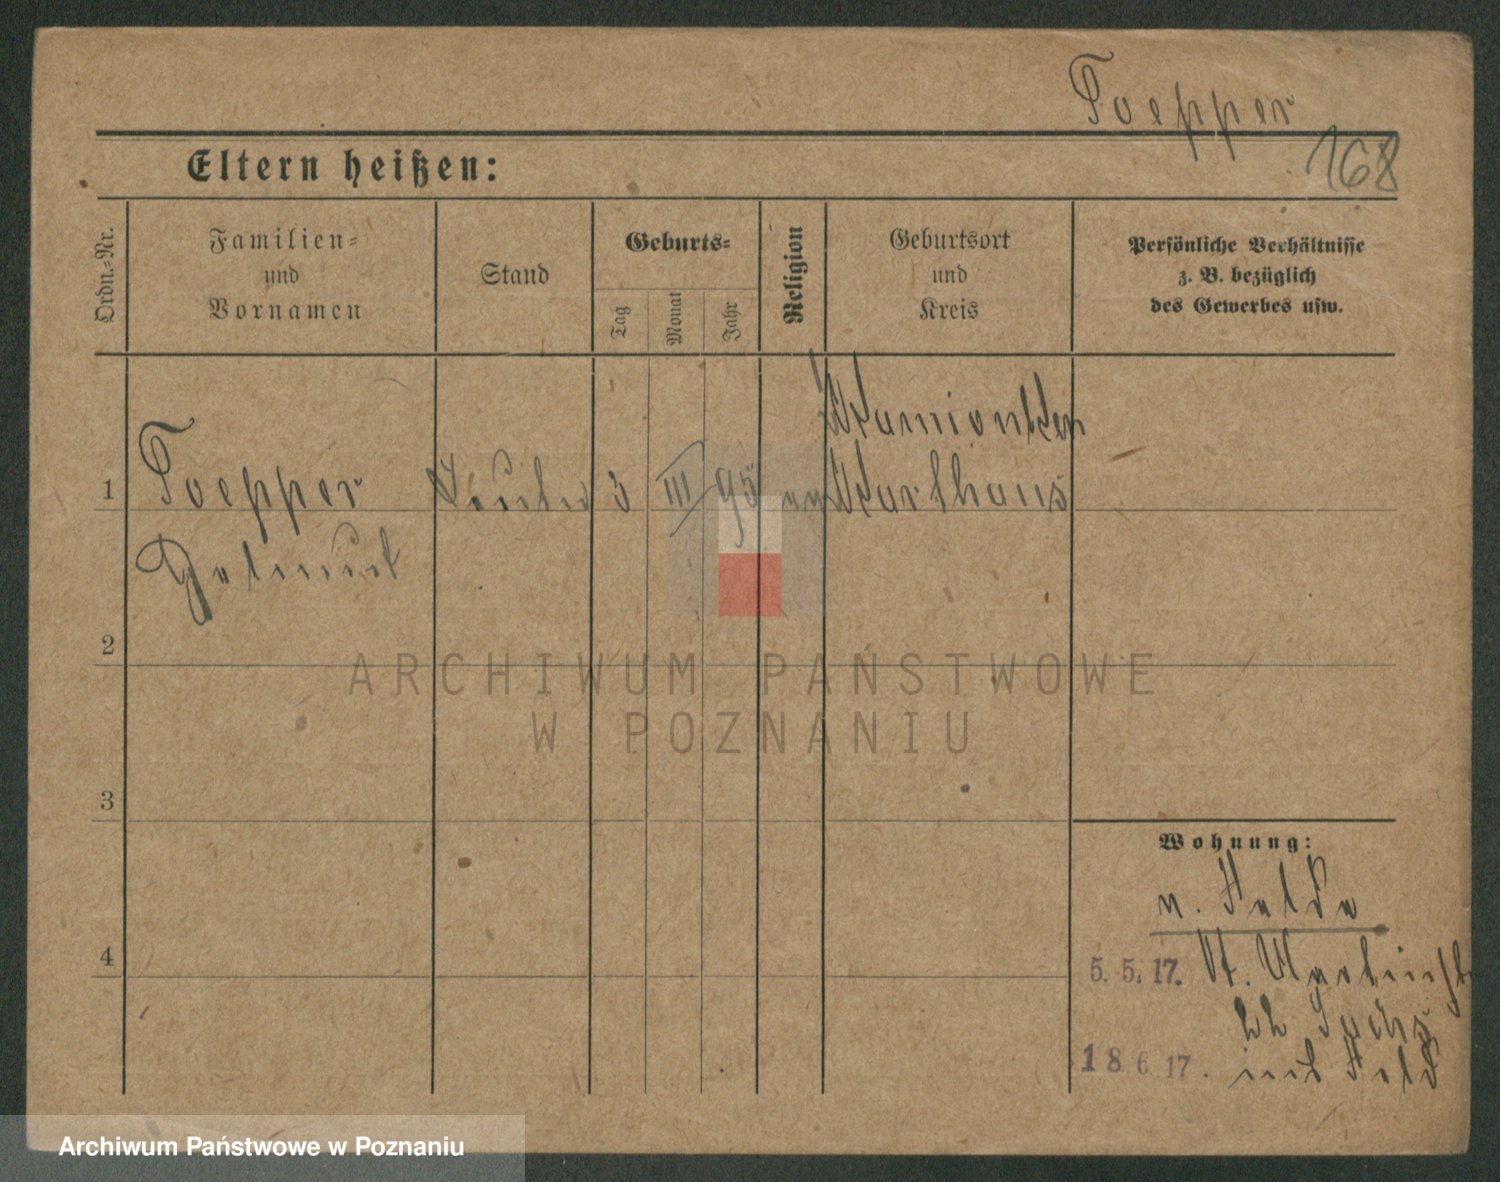 Toepper
168
Eltern heißen:
Ordn.-Nr.
Familien-
und
Vornamen
Stand
Geburts-
Tag
Monat
Jahr
Religion
Geburtsort
und
Kreis
Persönliche Verhältnisse
z. B. bezüglich
des Gewerbes usw.
1
Toepper
3
III
95
Karthaus
2
3
4
Wohnung:
5. 5. 17.
St. Martinstr
22
18 6 17.
ARCHIWUM PAŃSTWOWE
W POZNANIU
Archiwum Państwowe w Poznaniu